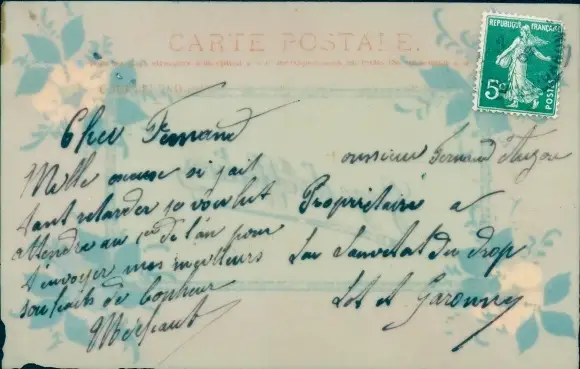 CARTE POSTALE
RÉPUBLIQUE FRANÇAISE
5c
POSTES
Cher Fernand
Mille excuse si jait
tant retarder je voulait
attendre au 1er de l'an pour
t'envoyer mes meilleurs
souhaits de bonheur
monsieur Fernand
Propriétaire a
La Sauvetat du Drop
Lot et Garonne